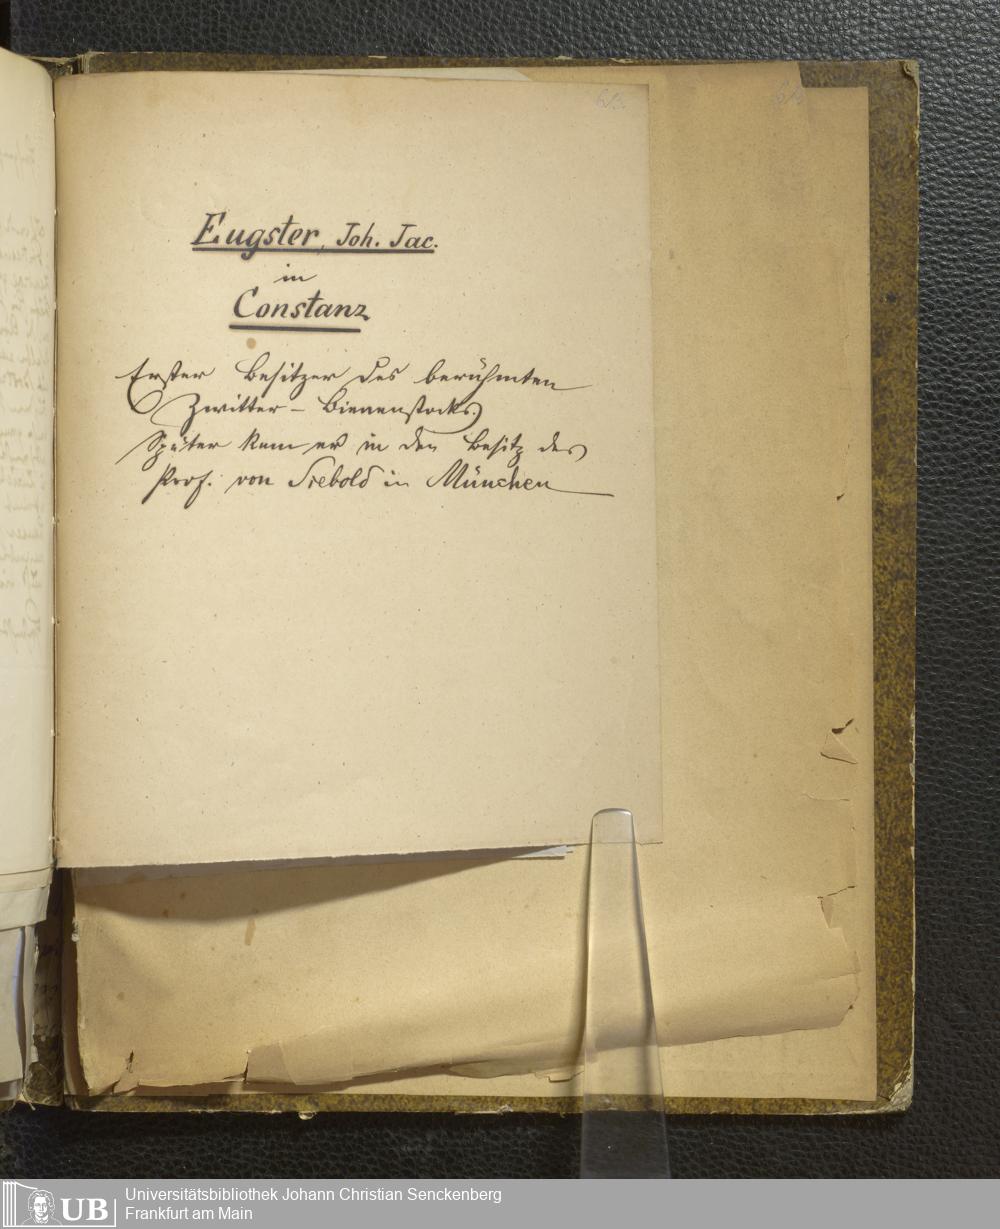 Eugster, Joh. Jac.
in
Constanz
Erster Besitzer des berühmten
Zwitter-Bienenstocks.
Später kam er in den Besitz des
Prof. von Siebold in München
UB
Universitätsbibliothek Johann Christian Senckenberg
Frankfurt am Main